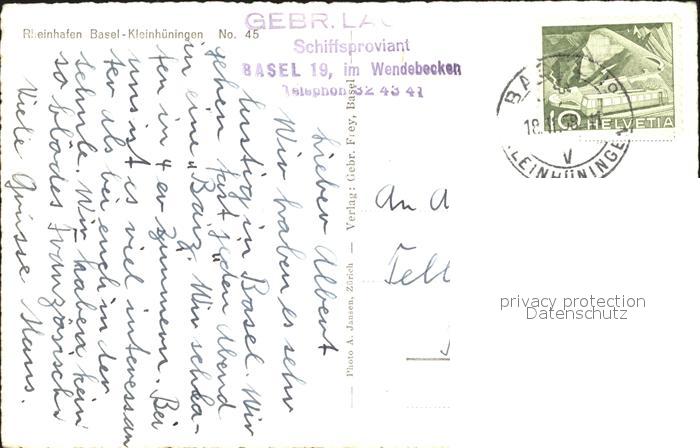 Rheinhafen Basel-Kleinhüningen No. 45
GEBR. LA
Schiffsproviant
BASEL 19, im Wendebecken
Telephon 32 43 41
HELVETIA
18.11.
KLEINHÜNINGEN
Lieber Albert
Wir haben es sehr
lustig in Basel. Wir
gehen fast jeden Abend
in eine "Baiz". Wir schla-
fen in 4 er Zimmern. Bei
uns ist es viel interessan
ter als bei euch in der
schule. Wir haben kein
so blödes Französisch
Viele Grüsse Hans.
Photo A. Jansen, Zürich — Verlag: Gebr. Frey, Basel
An A
Tell
privacy protection
Datenschutz